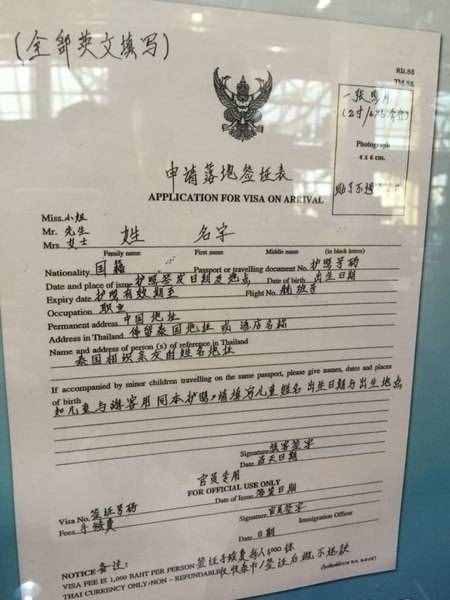 (全部英文填写)
申请落地签证表
APPLICATION FOR VISA ON ARRIVAL
Photograph
4 x 6 cm.
Miss.小姐
Mr. 先生
Mrs 女士 姓 名字
Family name First name Middle name (in block letters)
Nationality 国籍 Passport or travelling document No. 护照号码
Date and place of issue 护照签发日期及地点 Date of birth 出生日期
Expiry date 护照有效期至 Flight No. 航班号
Occupation 职业
Permanent address 中国地址
Address in Thailand 停留泰国地址或酒店名称
Name and address of person (s) of reference in Thailand
泰国相识亲友时姓名地址
If accompanied by minor children travelling on the same passport, please give names, dates and places
of birth
如儿童与游客用同本护照,请填写儿童姓名出生日期与出生地点
Signature 旅客签字
Date 当天日期
官员专用
FOR OFFICIAL USE ONLY
Visa No. 签证号码 Date of Issue 签发日期
Fees 手续费 Signature 官员签字
Immigration Officer
Date 日期
NOTICE 备注:
VISA FEE IS 1,000 BAHT PER PERSON 签证手续费每人1000铢
THAI CURRENCY ONLY / NON - REFUNDABLE 只收泰币/签证后概不退款